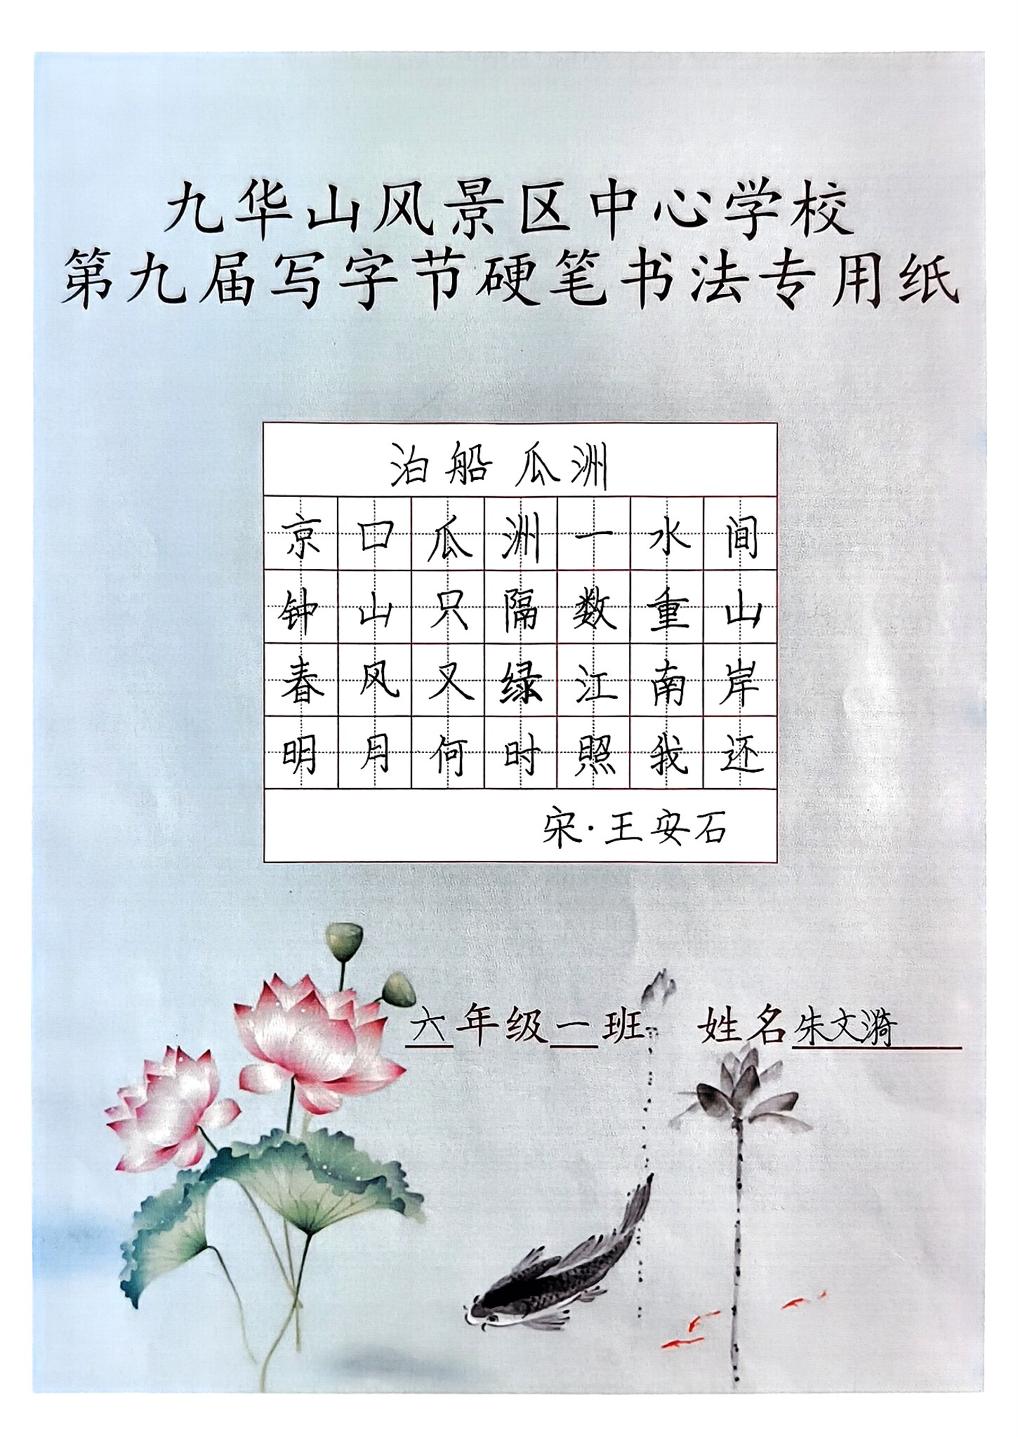 九华山风景区中心学校
第九届写字节硬笔书法专用纸
泊船瓜洲
京口瓜洲一水间
钟山只隔数重山
春风又绿江南岸
明月何时照我还
宋·王安石
六年级一班 姓名朱文漪